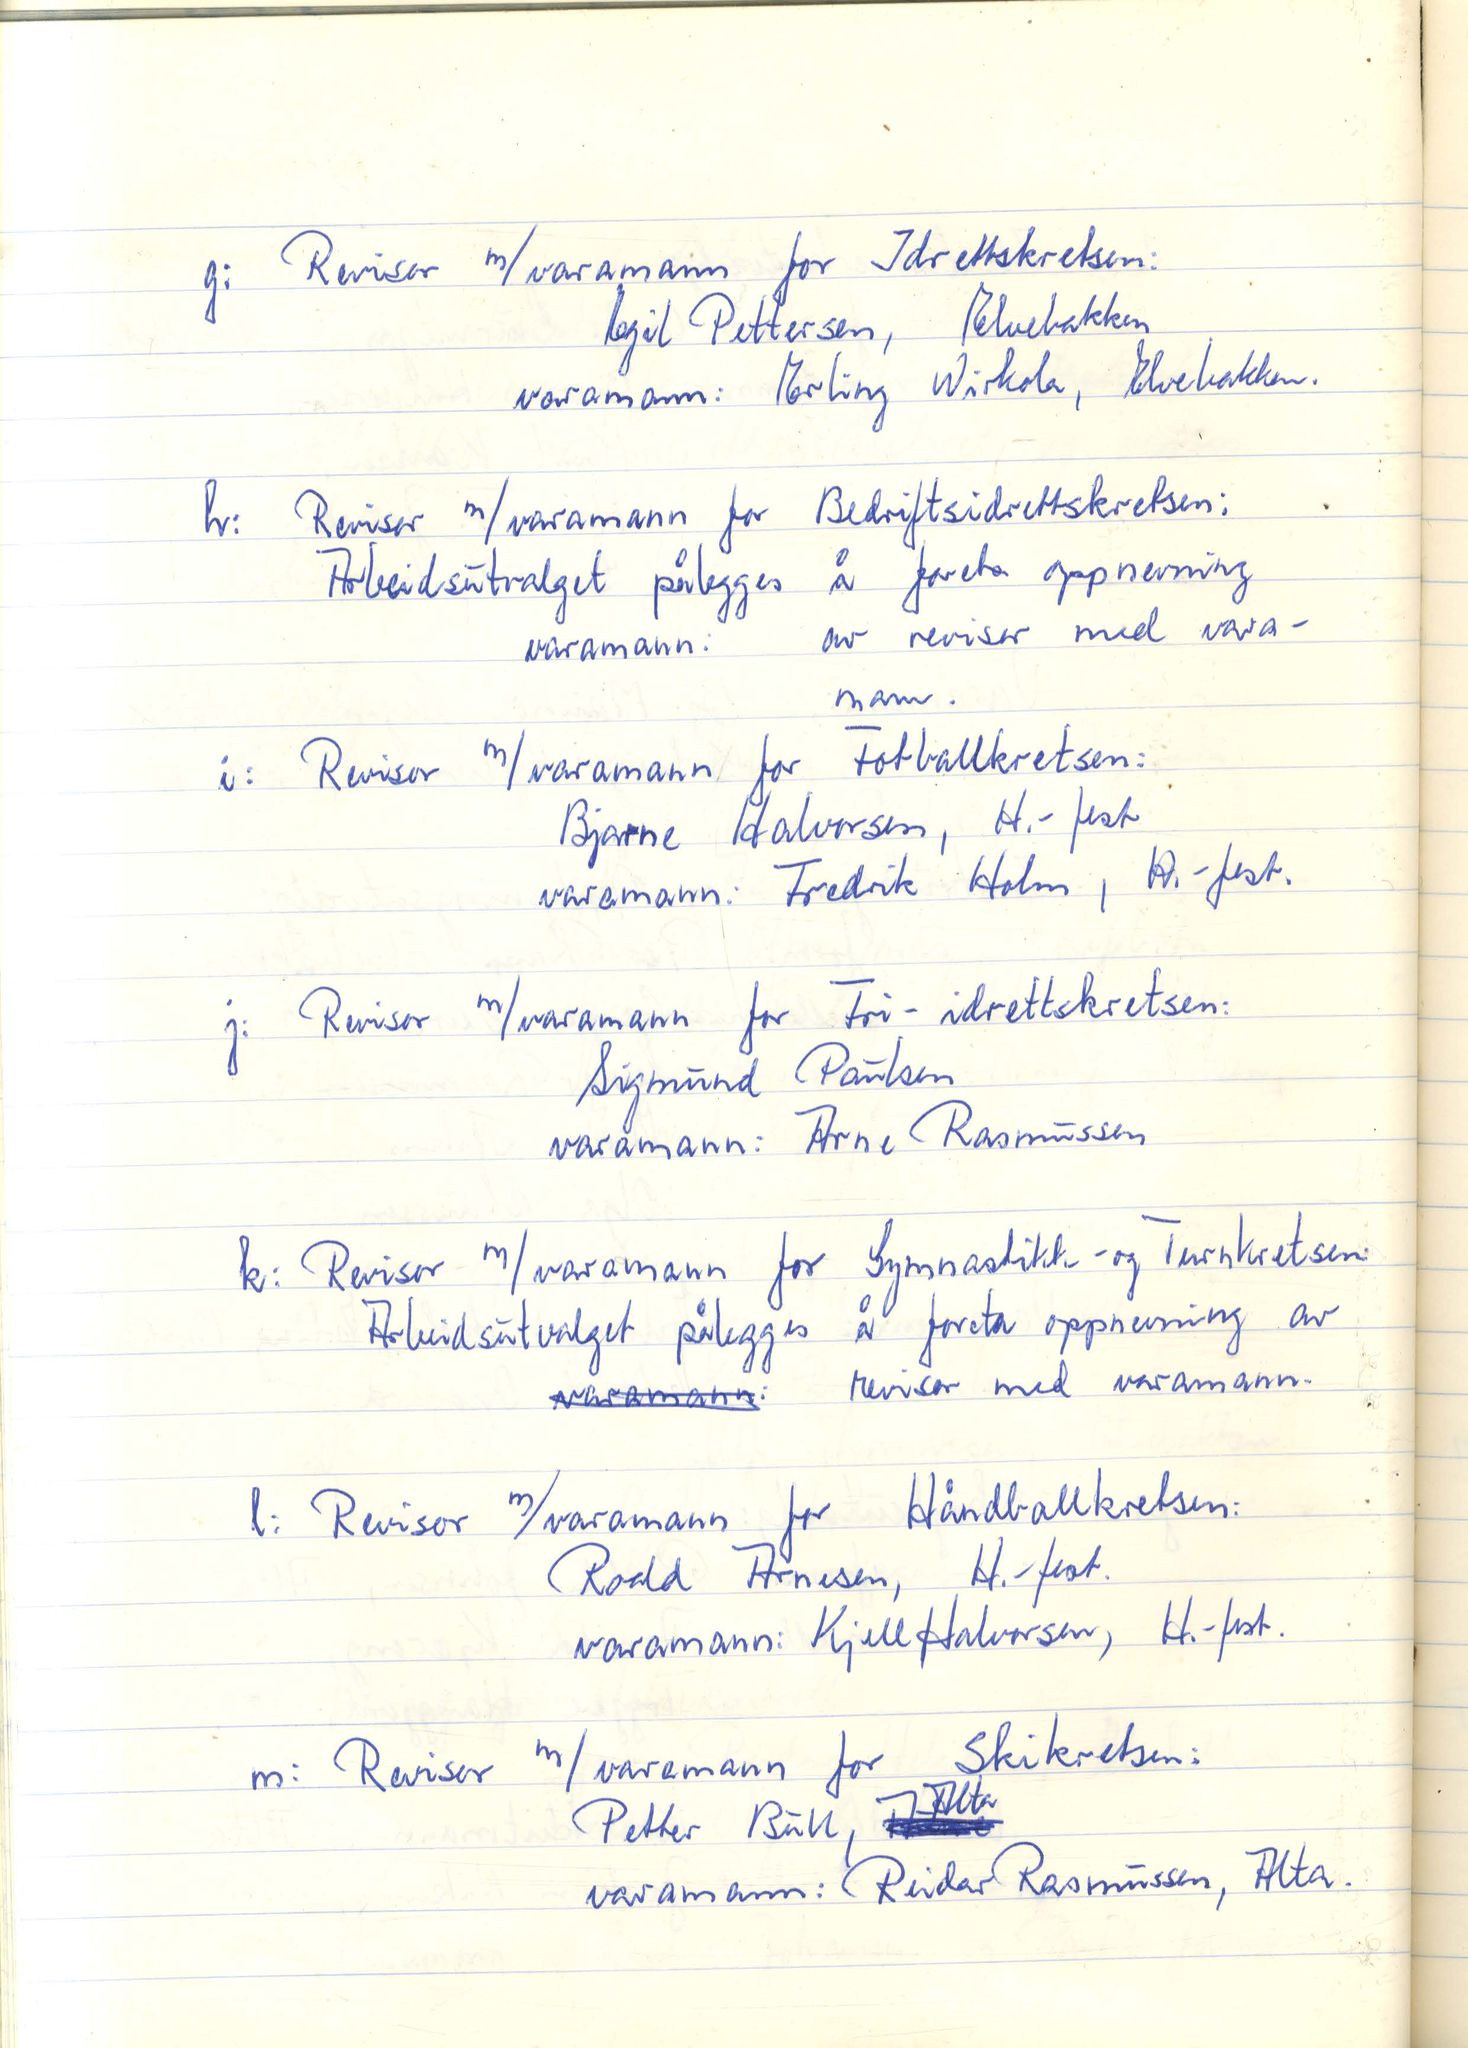 g: Revisor m/varamann for Idrettskretsen:
Egil Pettersen, Elvebakken
varamann: Erling Wirkola, Elvebakken.
h: Revisor m/varamann for Bedriftsidrettskretsen:
Arbeidsutvalget pålegges å foreta oppnevning
varamann: av revisor med vara-
mann.
i: Revisor m/varamann for Fotballkretsen:
Bjarne Halvorsen, H.-fest
varamann: Fredrik Holm, H.-fest.
j: Revisor m/varamann for Fri-idrettskretsen:
Sigmund Paulsen
varamann: Arne Rasmussen
k: Revisor m/varamann for Gymnastikk-og Turnkretsen:
Arbeidsutvalget pålegges å foreta oppnevning av
varamann: revisor med varamann.
l: Revisor m/varamann for Håndballkretsen:
Roald Arnesen, H.-fest.
varamann: Kjell Halvorsen, H.-fest.
m: Revisor m/varamann for Skikretsen:
Petter Bull, Alta
varamann: Reidar Rasmussen, Alta.